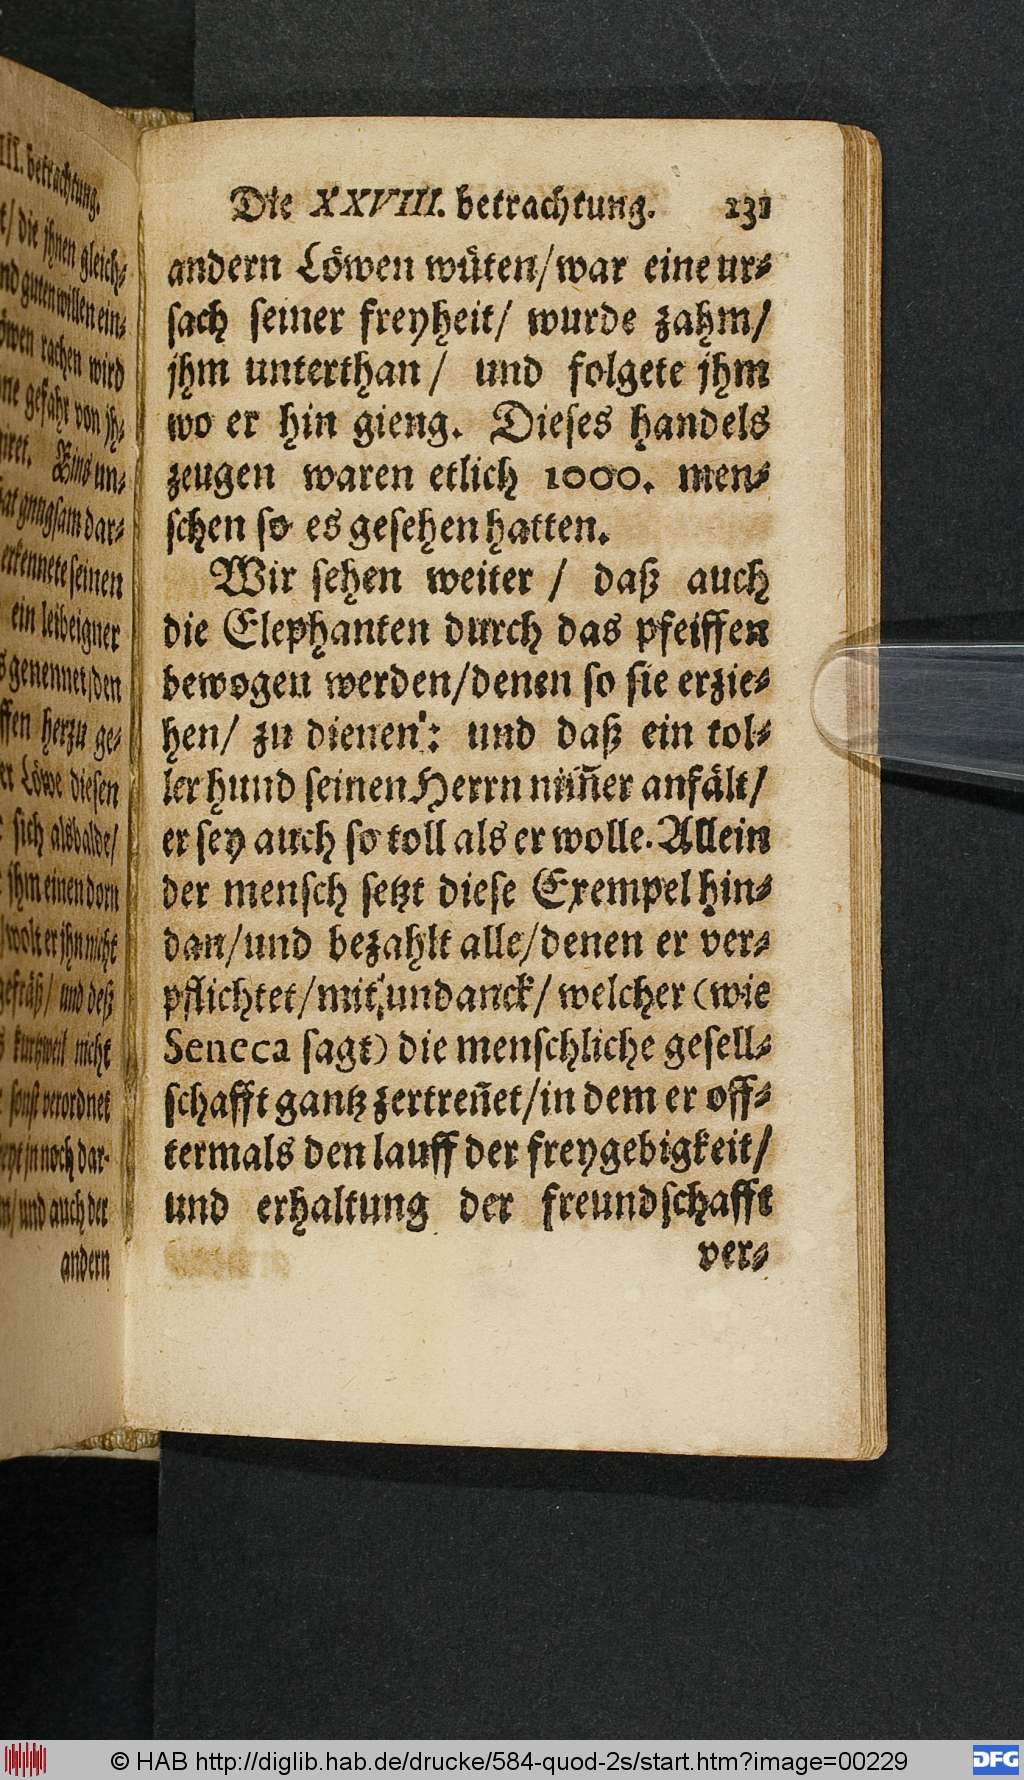 III. betrachtung.
t/ die jhnen gleich⸗
nd guten willen ein⸗
öwen rachen wird
ne gefahr von jh⸗
un⸗
gnugsam dar⸗
erkennete seinen
ein leibeigner
genennet/den
ffen herzu ge⸗
er Löwe diesen
sich alsbalde/
jhm einen dorn
wolt er jhn nicht
und deß
kurtzweil nicht
sonst verordnet
noch dar⸗
und auch der
andern
Die XXVIII. betrachtung. 231
andern Löwen wüten/war eine ur⸗
sach seiner freyheit/ wurde zahm/
jhm unterthan / und folgete jhm
wo er hin gieng. Dieses handels
zeugen waren etlich 1000. men⸗
schen so es gesehen hatten.
Wir sehen weiter / daß auch
die Elephanten durch das pfeiffen
bewogen werden/denen so sie erzie⸗
hen/ zu dienen: und daß ein tol⸗
ler hund seinen Herrn nim̃er anfält/
er sey auch so toll als er wolle. Allein
der mensch setzt diese Exempel hin⸗
dan/und bezahlt alle/denen er ver⸗
pflichtet/mit undanck/ welcher (wie
Seneca sagt) die menschliche gesell⸗
schafft gantz zertreñet/in dem er off⸗
termals den lauff der freygebigkeit/
und erhaltung der freundschafft
ver⸗
© HAB http://diglib.hab.de/drucke/584-quod-2s/start.htm?image=00229
DFG